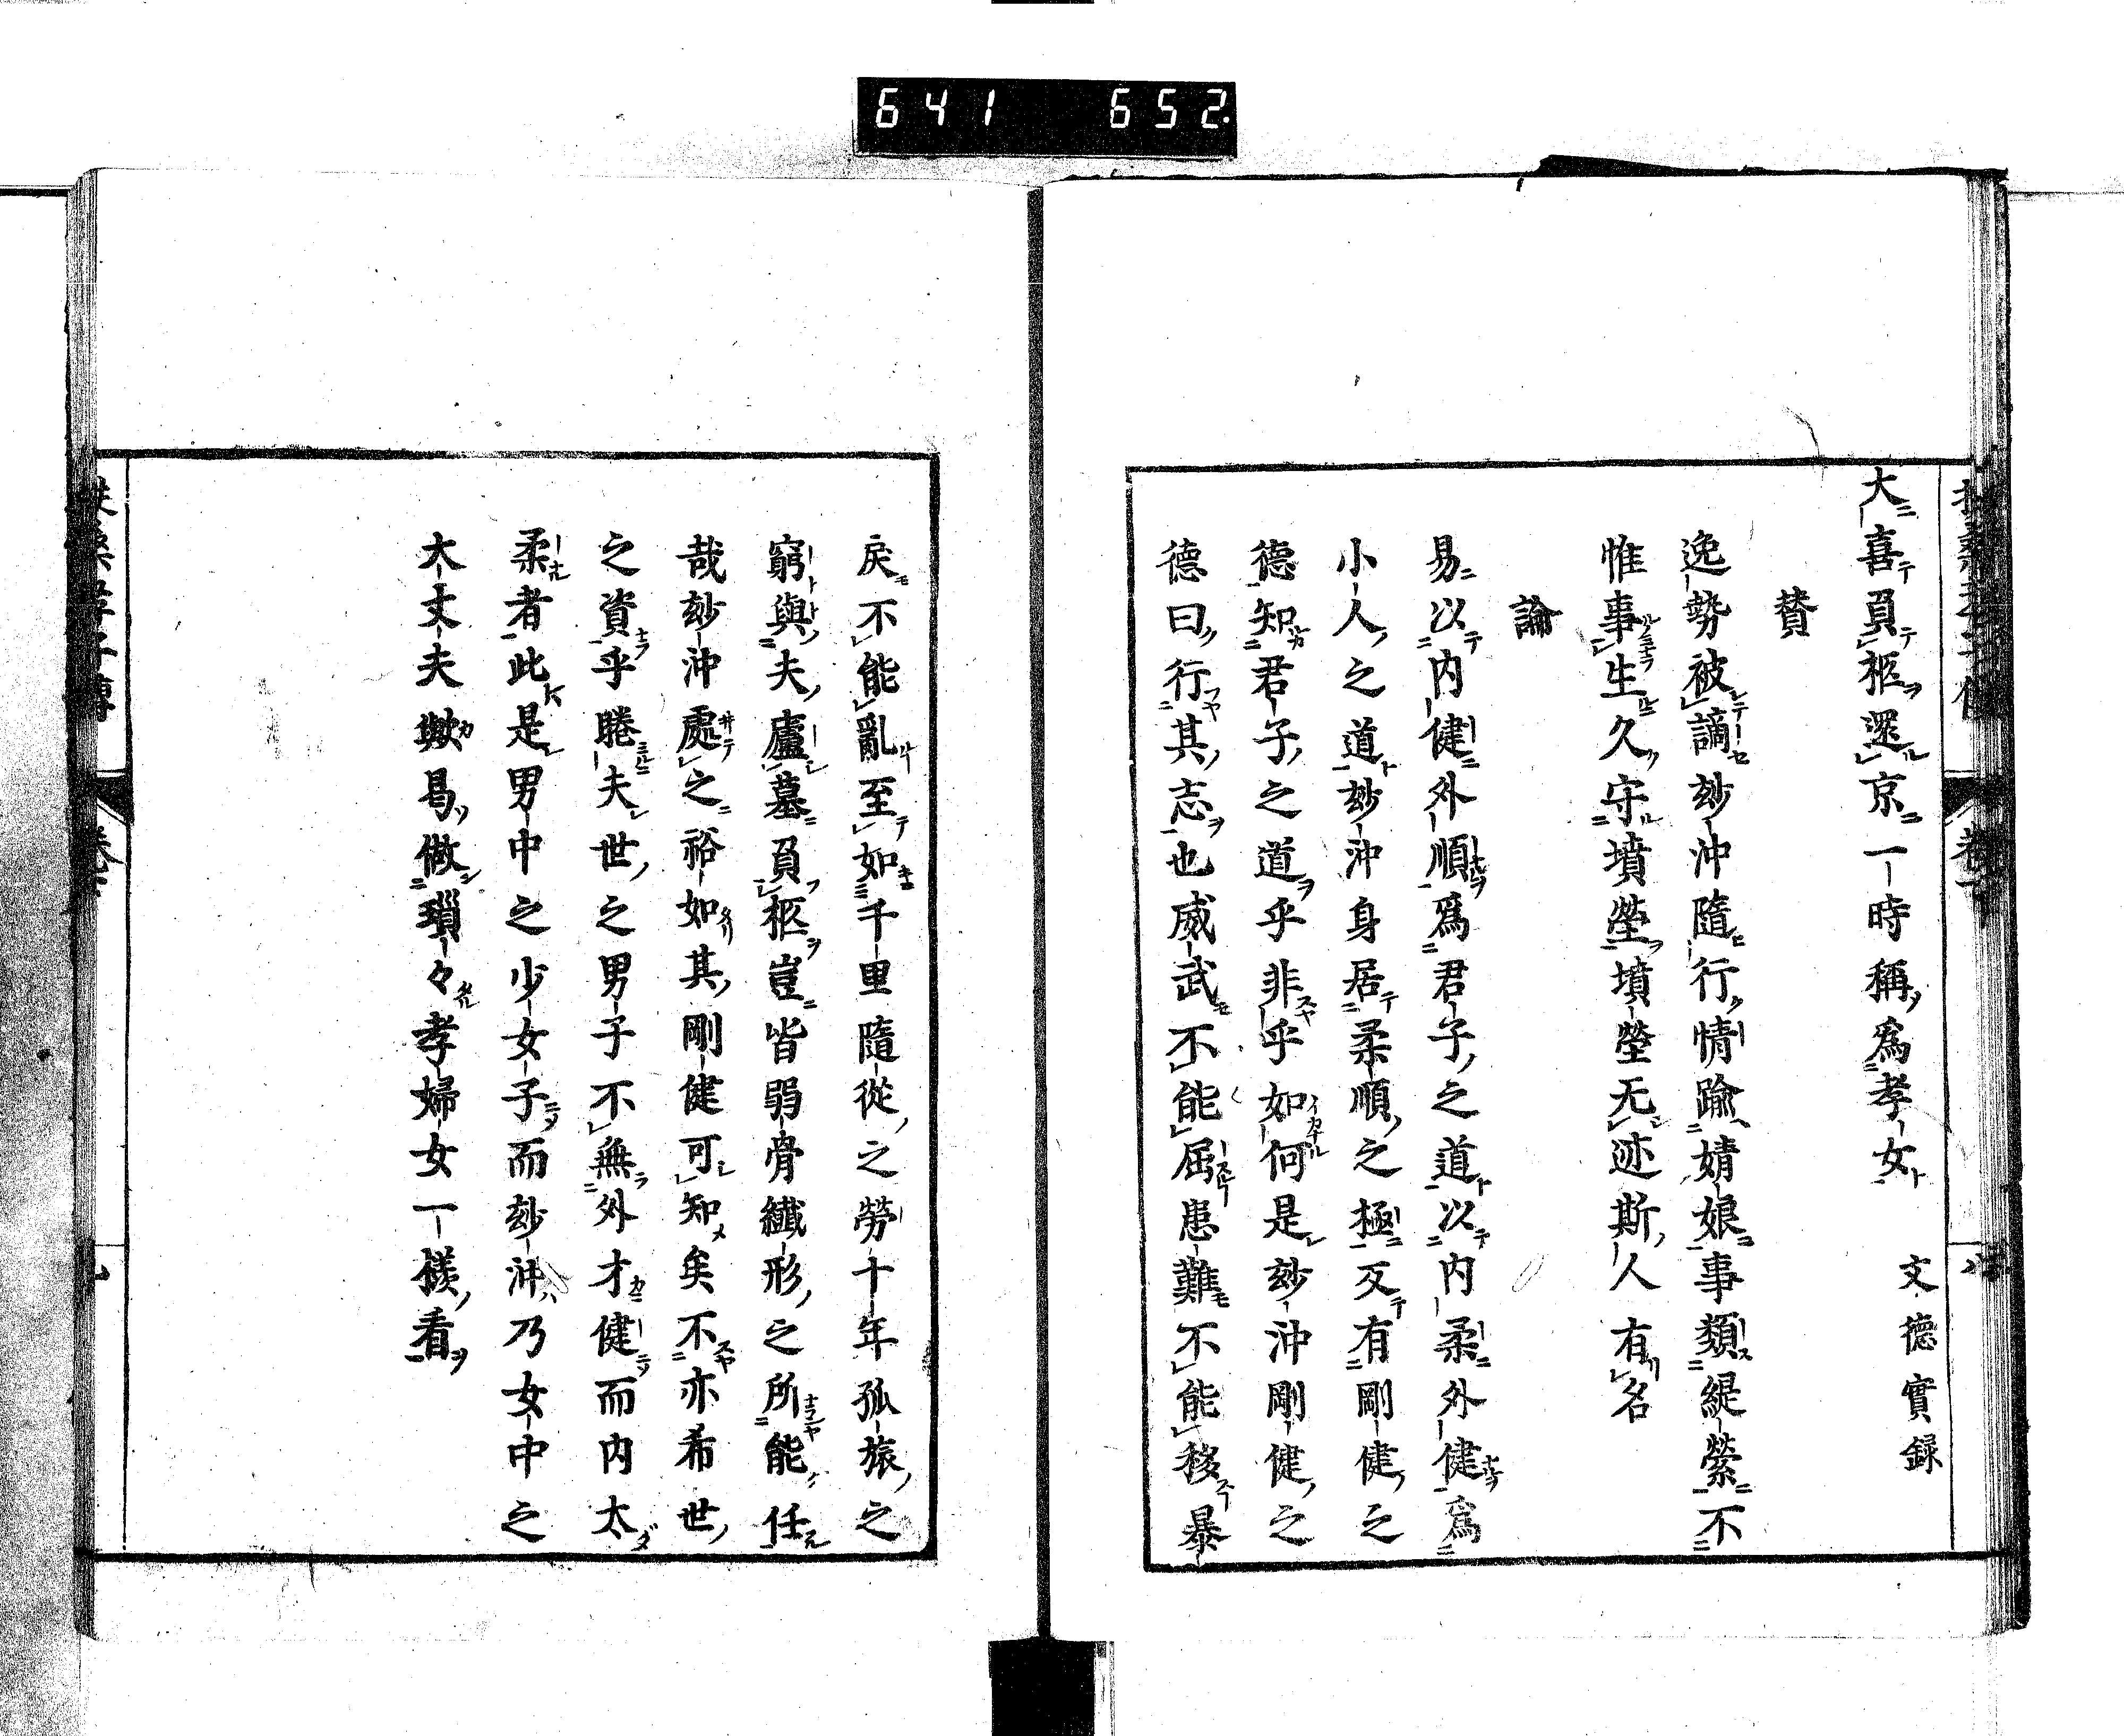 641 652.
大喜負柩還京一時稱爲孝女 文德實録
賛
逸勢被謫玅沖隨行情踰婧娘事類緹縈不
惟事生久守墳塋墳塋无迹斯人有名
論
易以内健外順爲君子之道以内柔外健爲
小人之道玅沖身居柔順之極又有剛健之
德知君子之道乎非乎如何是玅沖剛健之
德曰行其志也威武不能屈患難不能移暴
戾不能亂至如千里隨從之勞十年孤旅之
窮與夫廬墓負柩豈皆弱骨纖形之所能任
哉玅沖處之裕如其剛健可知矣不亦希世
之資乎睠夫世之男子不無外才健而内太
柔者此是男中之少女子而玅沖乃女中之
大丈夫歟曷做瑣々孝婦女一樣看
扶桑孝子傳 卷下